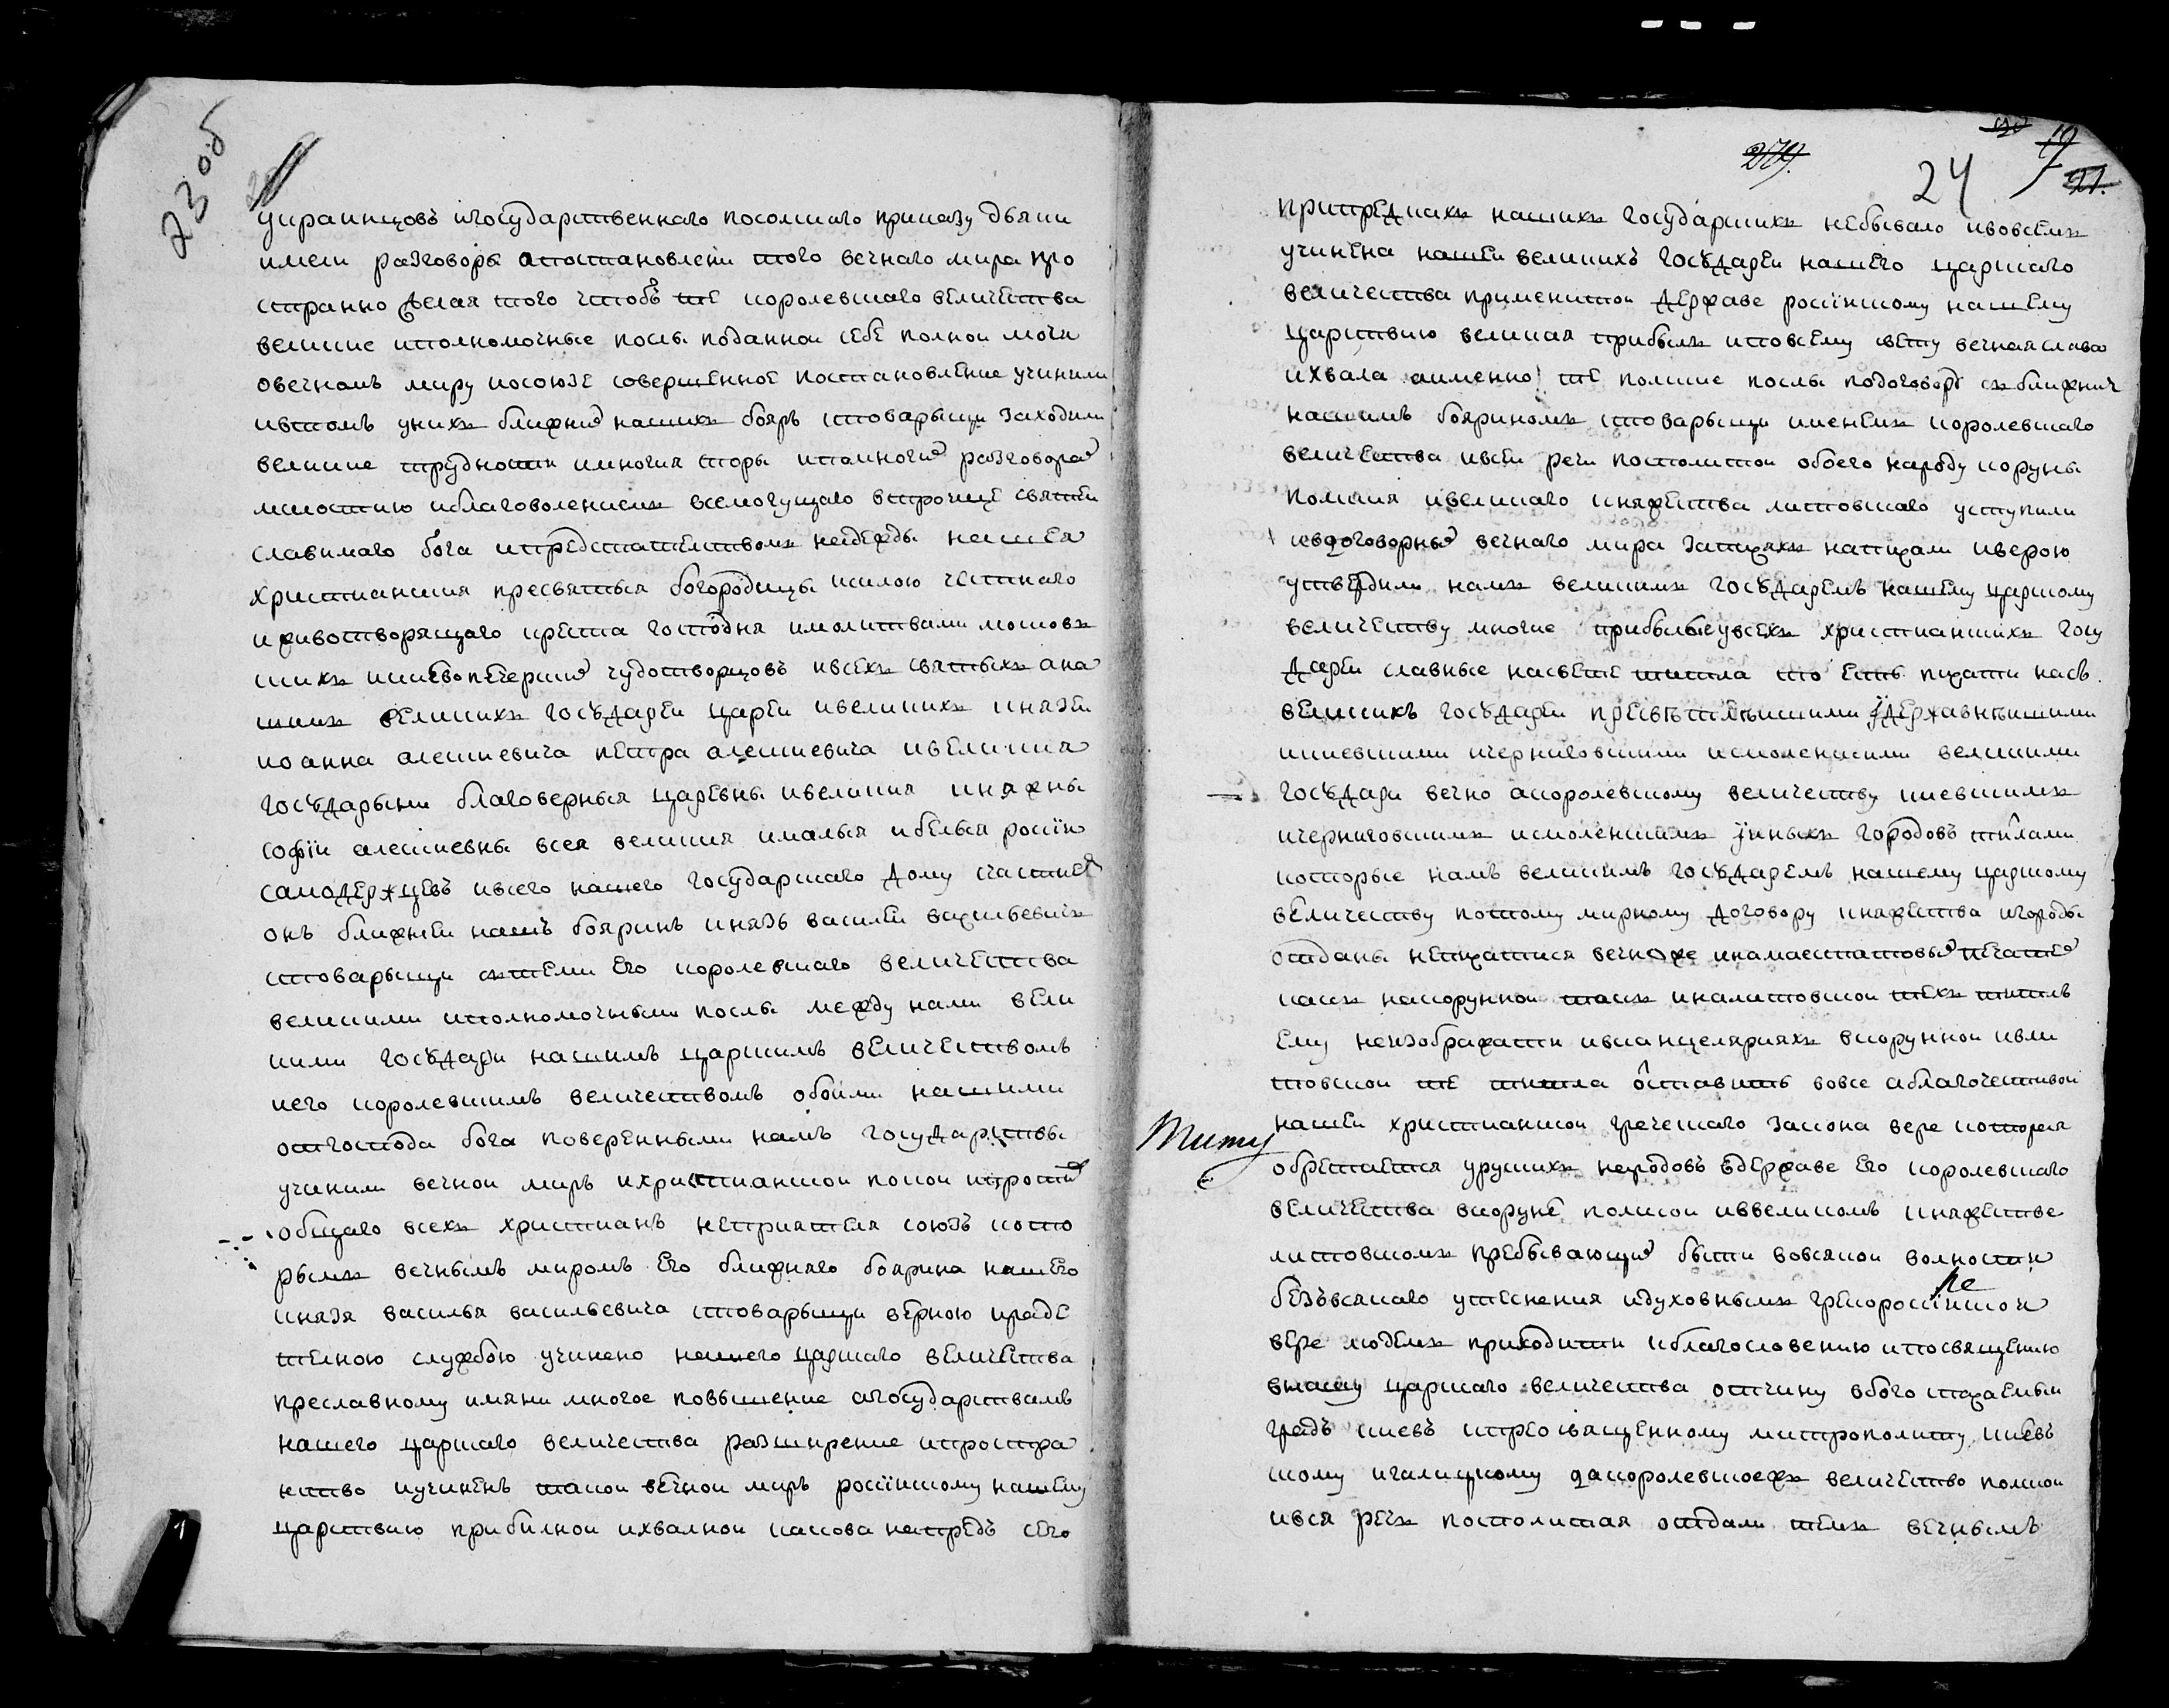 23 об
украинцовъ и государственнаго посолского приказу дьяки
имели разговоры а постановлени того вечнаго мира про
странно желая того чтобъ те королевского величества
великие и полномочные послы по данной себе полной мочи
о вечномъ миру и о союзе совершенное постановление учинили
и в томъ у нихъ ближнихъ нашихъ бояръ с товарыщи заходили
великие трудности и многия споры и по многихъ разговорахъ
милостию и благоволениемъ всемогущаго в троице святей
славимаго бога и предстателствомъ надежды нашея
християнския пресвятыя богородицы и силою честнаго
и животворящаго креста господня и молитвами москов
ских и киевопечерских чудотворцовъ и всех святых а на
шимъ великихъ государей царей и великихъ князей
иоанна алексиевича петра алексиевича и великия
государыни благоверныя царевны и великия княжны
софии алексиевны всея великия и малыя и белыя росии
самодержцевъ и всего нашего государского дому счастиемъ
онъ ближней нашъ бояринъ князь василей васильевичь
с товарыщи с теми его королевского величества
великими и полномочными послы между нами вели
кими государи нашимъ царскимъ величествомъ
и его королевскимъ величествомъ обоими нашими
от господа бога поверенными намъ государствы
учинили вечной миръ и християнской покой и против
общаго всех християнъ неприятеля союзъ кото
рымъ вечнымъ миромъ его ближняго боярина нашего
князя василья васильевича с товарыщи верною и раде
телною службою учинено нашего царского величества
преславному имяни многое повышение а государствамъ
нашего царского величества разширение и простра
нство и учиненъ такой вечной миръ росийскому нашему
царствию прибылной и хвалной какова напредь сего
279
24
при предкахъ нашихъ государских не бывало и во всемъ
учинена нашей великихъ государей нашего царского
величества применитой державе росийскому нашему
царствию великая прибыль и по всему свету вечная слава
и хвала а именно те полские послы по договору с ближнимъ
нашимъ бояриномъ с товарыщи именемъ королевского
величества и всей речи посполитой обоего народу коруны
полския и великаго княжества литовского уступили
и в договорныхъ вечнаго мира записяхъ написали и верою
утвердили намъ великимъ государемъ нашему царскому
величеству многие прибылые у всехъ християнскихъ госу
дарей славные на свете титла то есть писати насъ
великихъ государей пресветлейшими и державнейшими
и киевскими и черниговскими и смоленскими великими
государи вечно а королевскому величеству киевскимъ
и черниговскимъ и смоленскимъ и иныхъ городовъ титлами
которые намъ великимъ государемъ нашему царскому
величеству по тому мирному договору княжества и городы
отданы не писатися вечно же и на маестатовых печатех
какъ на корунной такъ и на литовской техъ титлъ
ему не изображати и в канцеляриях в корунной и в ли
товской те титла оставить вовсе а благочестивой
нашей християнской греческого закона вере которая
обретается у руских народовъ в державе его королевского
величества в коруне полской и в великомъ княжестве
литовскомъ пребывающих быти во всякой волности
безъ всякаго утеснения и духовнымъ грекоросийской
вере людемъ приходити к благословению и посвящению
в нашу царского величества отчину в богоспасаемый
градъ киевъ к преосвященному митрополиту киевъ
скому и галицкому да королевское ж величество полской
и вся речь посполитая отдали темъ вечнымъ